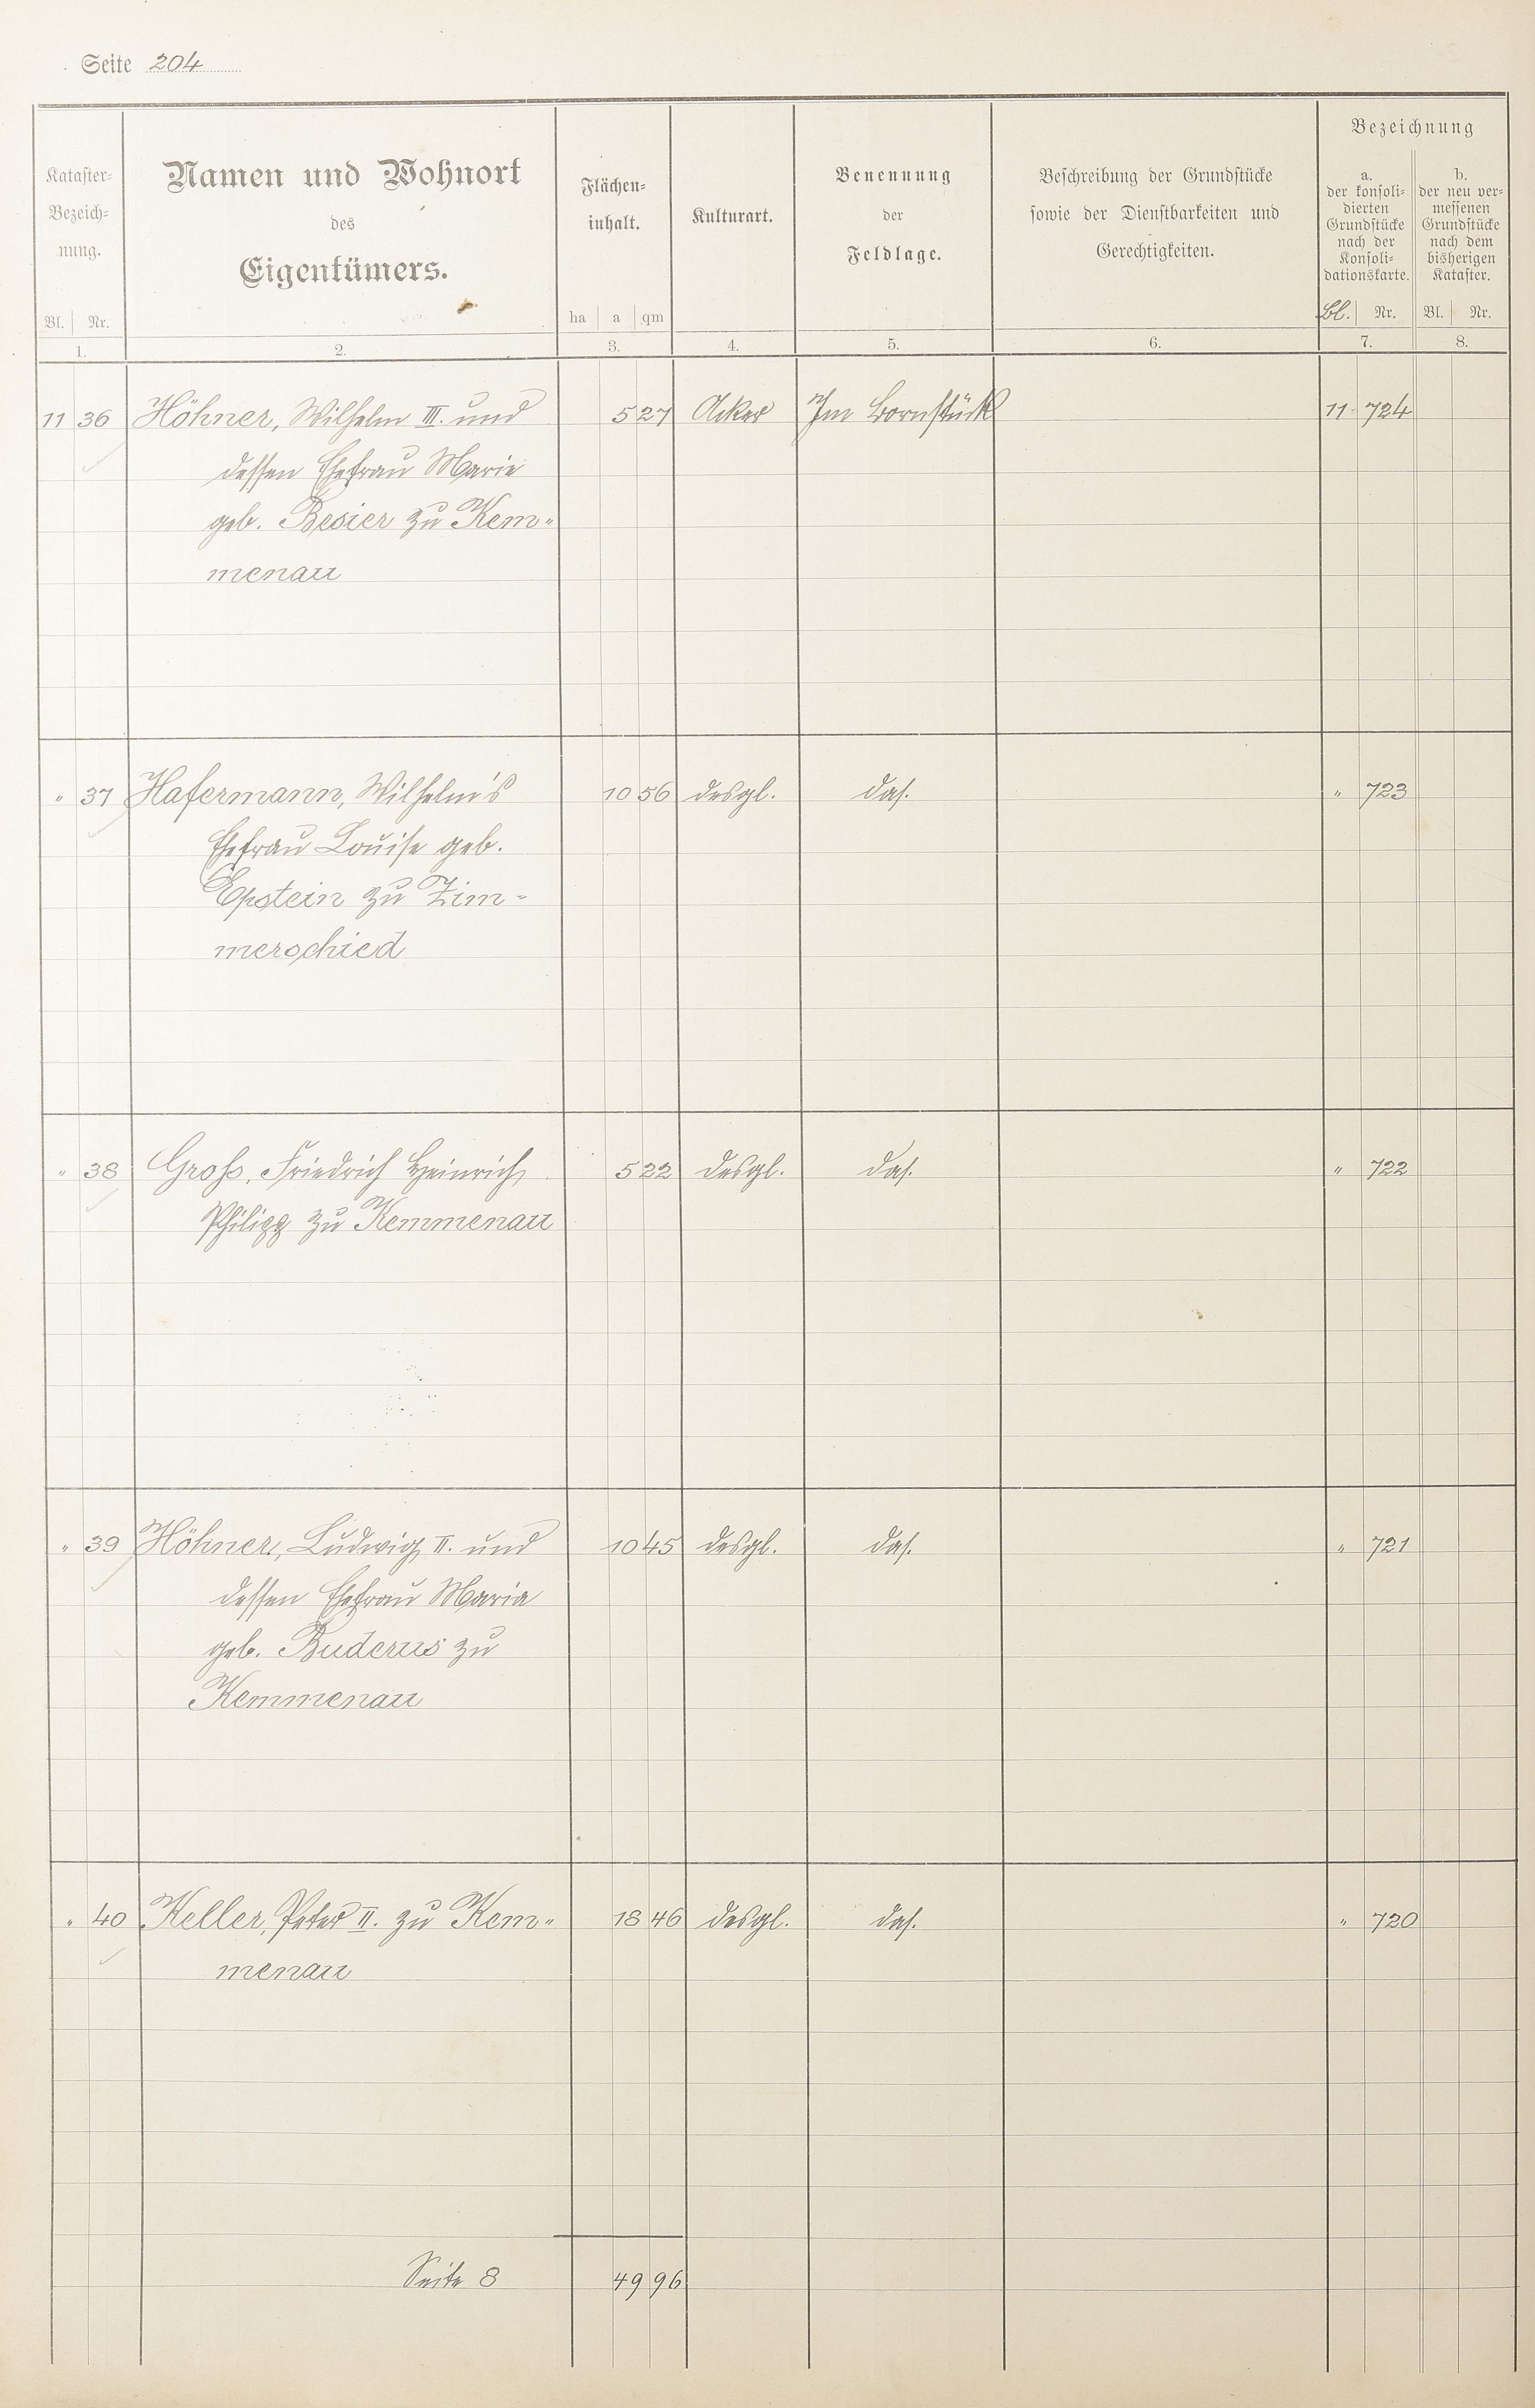 Seite 204
Kataster-
Bezeich-
nung.
Bl. Nr.
1.
Namen und Wohnort
des
Eigentümers.
2.
Flächen-
inhalt.
ha a qm
3.
Kulturart.
4.
Benennung
der
Feldlage.
5.
Beschreibung der Grundstücke
sowie der Dienstbarkeiten und
Gerechtigkeiten.
6.
Bezeichnung
a.
der konsoli-
dierten
Grundstücke
nach der
Konsoli-
dationskarte.
Bl. Nr.
7.
b.
der neu ver-
messenen
Grundstücke
nach dem
bisherigen
Kataster.
Bl. Nr.
8.
11 36 Höhner, Wilhelm III. und 5 27 Acker Im Bornstück 11 724
dessen Ehefrau Marie
geb. Besier zu Kem-
menau
" 37 Hafermann, Wilhelm's 10 56 desgl. das. " 723
Ehefrau Louise geb.
Epstein zu Zim-
merschied
" 38 Groß, Friedrich Heinrich 5 22 desgl. das. " 722
Philipp zu Kemmenau
" 39 Höhner, Ludwig II. und 10 45 desgl. das. " 721
dessen Ehefrau Maria
geb. Buderus zu
Kemmenau
" 40 Keller, Peter II. zu Kem- 18 46 desgl. das. " 720
menau
Seite 8 49 96